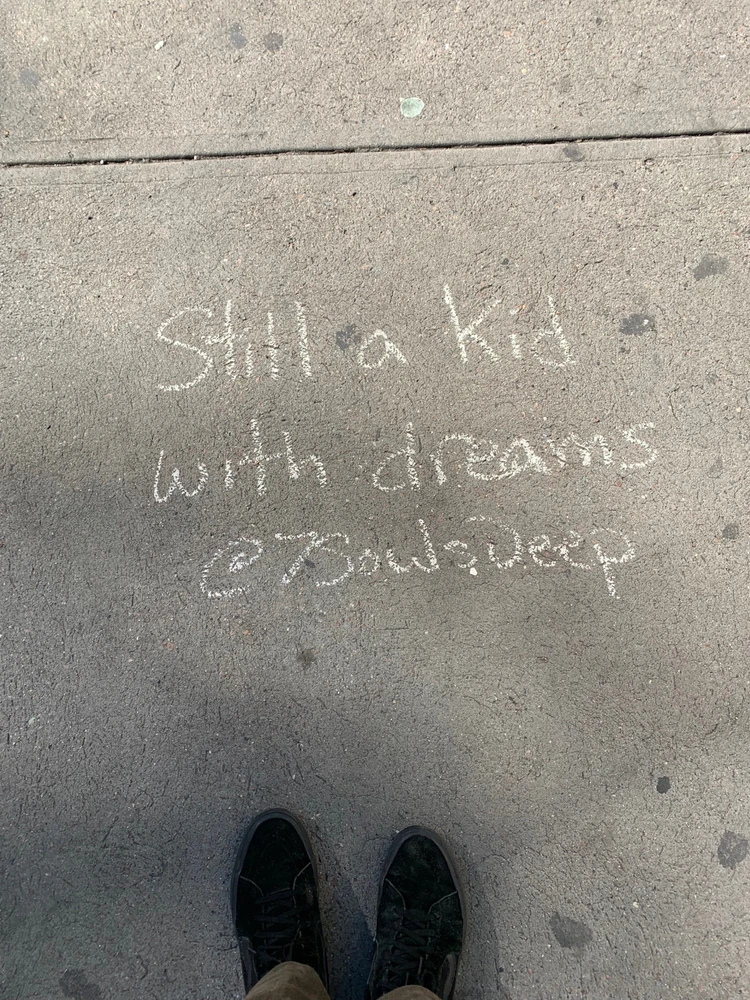 Still a kid
with dreams
@7SoulsDeep